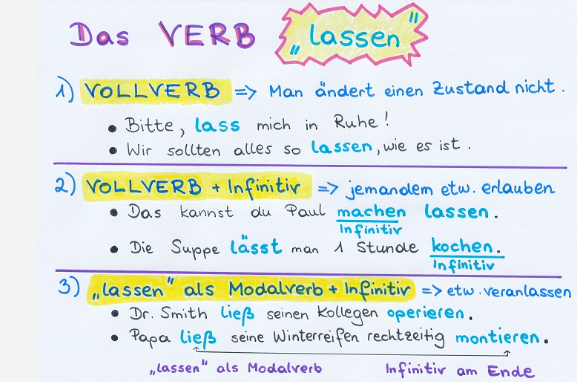 Das VERB „lassen"
1) VOLLVERB => Man ändert einen Zustand nicht.
• Bitte, lass mich in Ruhe!
• Wir sollten alles so lassen, wie es ist.
2) VOLLVERB + Infinitiv => jemandem etw. erlauben
• Das kannst du Paul machen lassen.
Infinitiv
• Die Suppe lässt man 1 Stunde kochen.
Infinitiv
3) „lassen" als Modalverb + Infinitiv => etw. veranlassen
• Dr. Smith ließ seinen Kollegen operieren.
• Papa ließ seine Winterreifen rechtzeitig montieren.
„lassen" als Modalverb Infinitiv am Ende